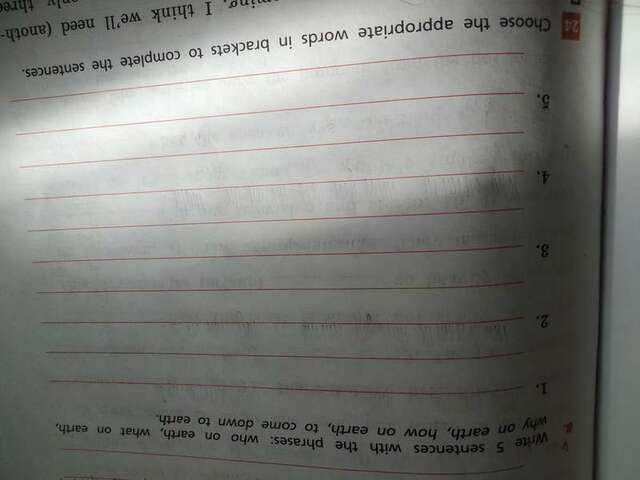 Write 5 sentences with the phrases: who on earth, what on earth,
why on earth, how on earth, to come down to earth.
1.
2.
3.
4.
5.
24 Choose the appropriate words in brackets to complete the sentences.
I think we'll need (anoth-